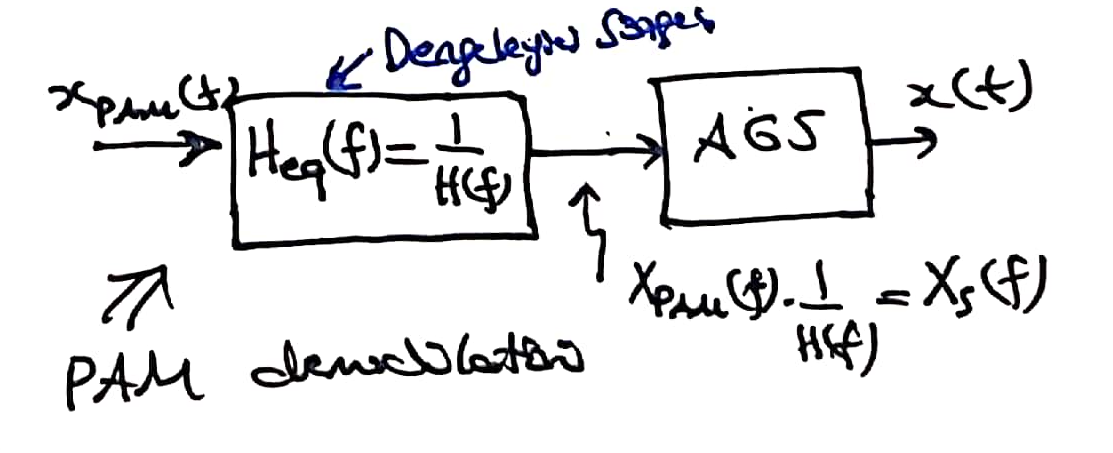 Dengeleyici Süzgeç
x_PAM(t)
H_eq(f) = 1/H(f)
AGS
x(t)
X_PAM(f) · 1/H(f) = X_s(f)
PAM demodulation